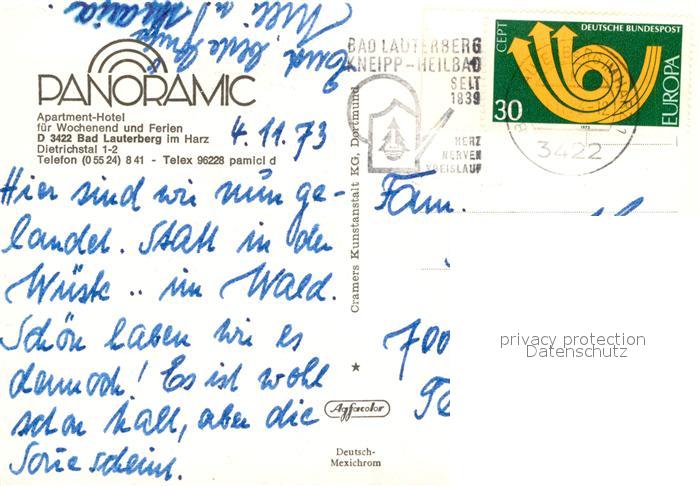 PANORAMIC
Apartment-Hotel
für Wochenend und Ferien
D 3422 Bad Lauterberg im Harz
Dietrichstal 1-2
Telefon (0 55 24) 8 41 - Telex 96228 pamicl d
4.11.73
Hier sind wir nun ge-
landet. Statt in der
Wüste .. im Wald.
Schön haben wir es
dennoch! Es ist wohl
schon kalt, aber die
Sonne scheint.
Cramers Kunstanstalt KG, Dortmund
Agfacolor
Deutsch-
Mexichrom
BAD LAUTERBERG
KNEIPP-HEILBAD
SEIT
1839
HERZ
NERVEN
KREISLAUF
CEPT
DEUTSCHE BUNDESPOST
EUROPA
30
1973
3422
Fam.
700
privacy protection
Datenschutz